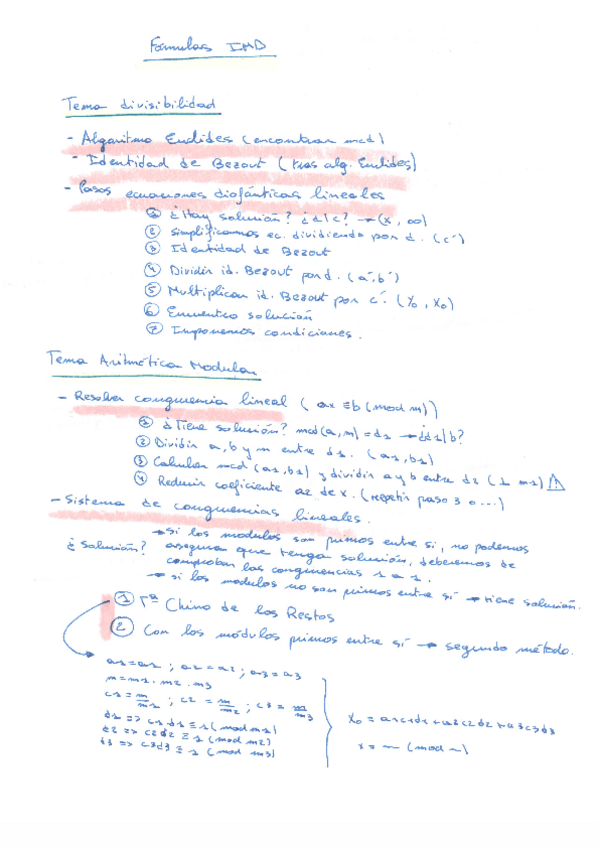 Fórmulas IMD
Tema divisibilidad
- Algoritmo Euclides (encontrar mcd)
- Identidad de Bezout (tras alg. Euclides)
- Pasos ecuaciones diofánticas lineales
① ¿Hay solución? ¿d|c? → (x, ∞)
② simplificamos ec. dividiendo por d. (c')
③ Identidad de Bezout
④ Dividir id. Bezout por d. (a',b')
⑤ Multiplicar id. Bezout por c'. (Y0, X0)
⑥ Encuentro solución
⑦ Imponemos condiciones.
Tema Aritmética Modular
- Resolver congruencia lineal (ax ≡ b (mod m))
① ¿Tiene solución? mcd(a,m) = d1 → ¿d1|b?
② Dividir a, b y m entre d1. (a1, b1)
③ Calcular mcd (a1,b1) y dividir a y b entre d2 (⊥ m1) ⚠
④ Reducir coeficiente a2 de x. (repetir paso 3 o ...)
- Sistema de congruencias lineales.
→ si los modulos son primos entre si, no podemos
¿Solución? asegurar que tenga solución, deberemos de
comprobar las congruencias 1 a 1.
→ si los modulos no son primos entre sí → tiene solución.
① Tª Chino de los Restos
② Con los módulos primos entre sí → segundo método.
a1=a1 ; a2=a2 ; a3=a3
m=m1·m2·m3
c1 = m/m1 ; c2 = m/m2 ; c3 = m/m3
d1 => c1d1 ≡ 1 (mod m1)
d2 => c2d2 ≡ 1 (mod m2)
d3 => c3d3 ≡ 1 (mod m3)
X0 = a1c1d1 + a2c2d2 + a3c3d3
x = ~ (mod ~)